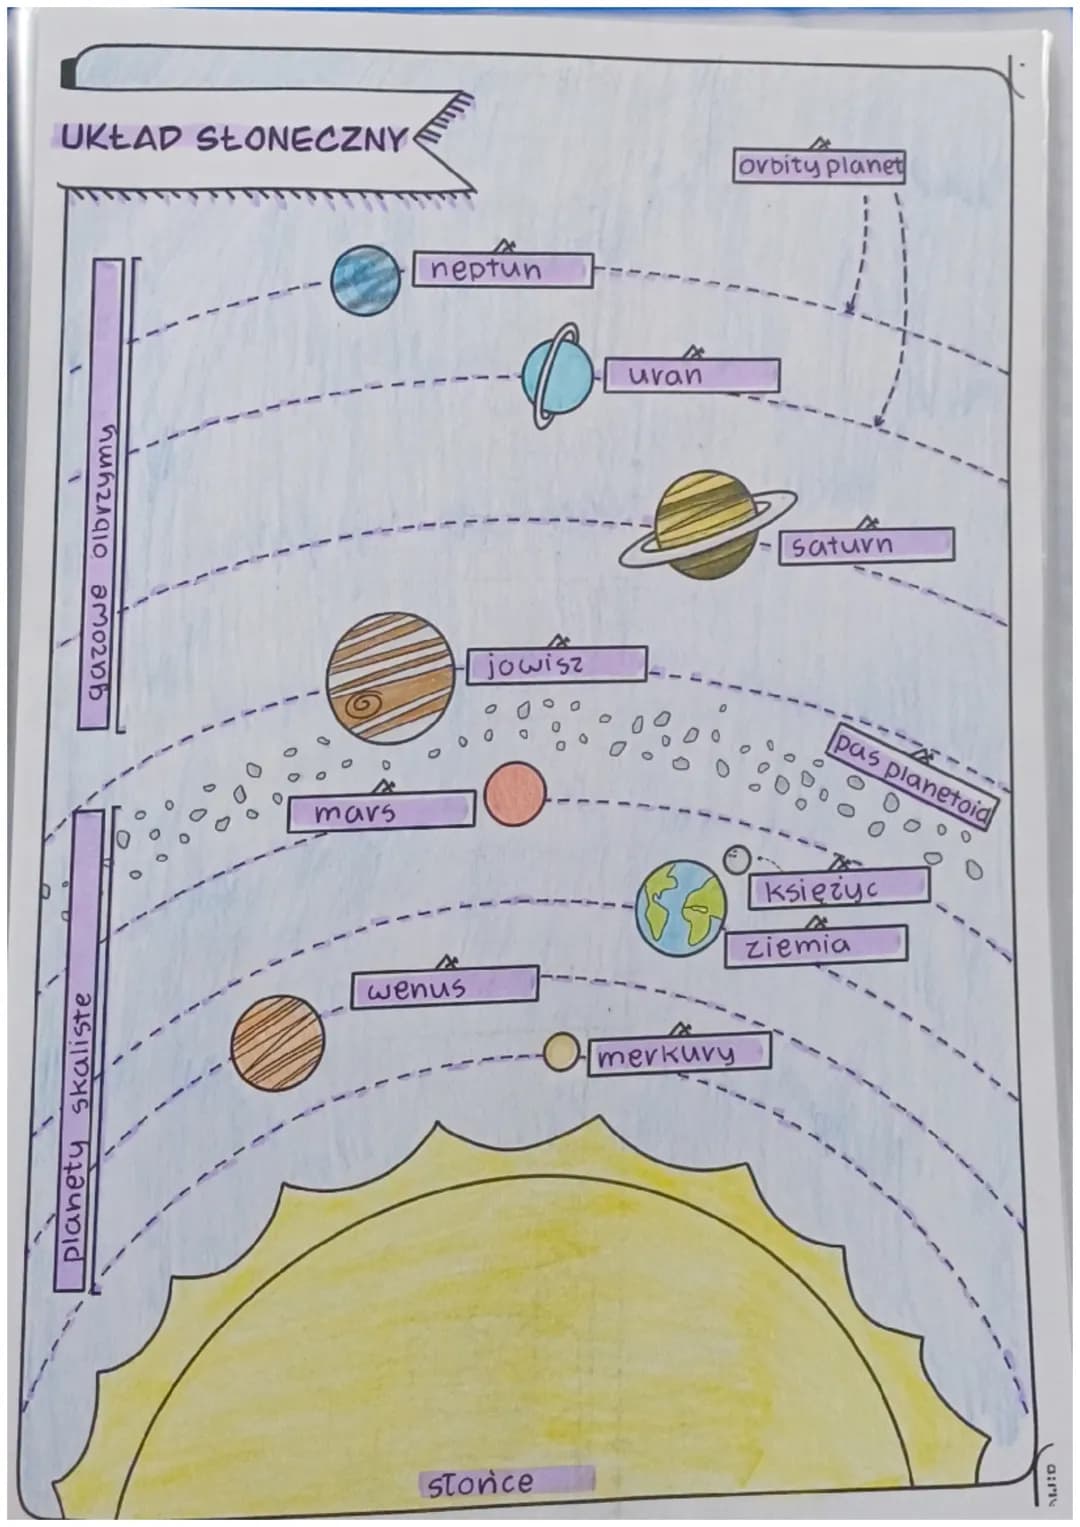 UKŁAD SŁONECZNY
orbity planet
neptun
uran
saturn
gazowe olbrzymy
jowisz
pas planetoid
mars
księżyc
ziemia
planety skaliste
wenus
merkury
słońce